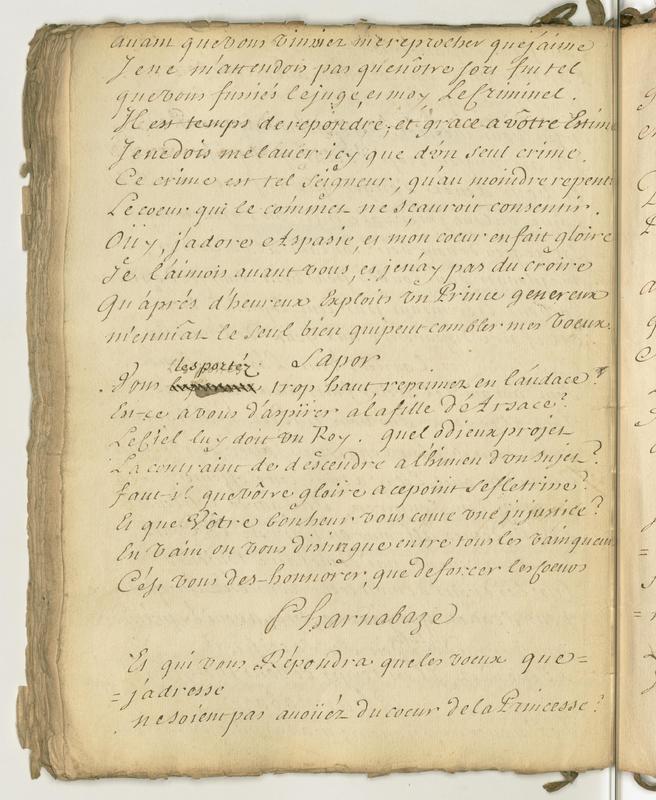 avant que vous vinssiez me reprocher que j'aime
Je ne m'attendois pas que nôtre sort fut tel
que vous fussiés le juge, et moy Le Criminel.
Il est temps de repondre, et grace a vôtre Estime
Je ne dois me laver icy que d'un seul crime.
Ce crime est tel Seigneur, qu'au moindre repenti
Le coeur qui le commet ne scauroit consentir.
Oüy, j'adore Aspasie, et mon coeur en fait gloire
Je L'aimois avant vous, et je n'ay pas du croire
Qu'aprés d'heureux Exploits un Prince genereux
m'enviat le seul bien qui peut combler mes voeux.
Sapor
les portéz
Vous trop haut reprimez en l'audace?
Est-ce a vous d'aspirer a la fille d'Arsace?
Le Ciel luy doit un Roy. quel odieux projet
La contraint de descendre a l'himen d'un sujet?
faut-il que vôtre gloire a ce point se fletrine?
Et que Vôtre bonheur vous coute une injustice?
En vain on vous distingue entre tous les vainqueurs
C'est vous des-honnorer, que de forcer les Coeurs
Pharnabaze
Et qui vous Répondra que les voeux que=
=j'adresse
ne soient pas avoüéz du coeur de la Princesse?